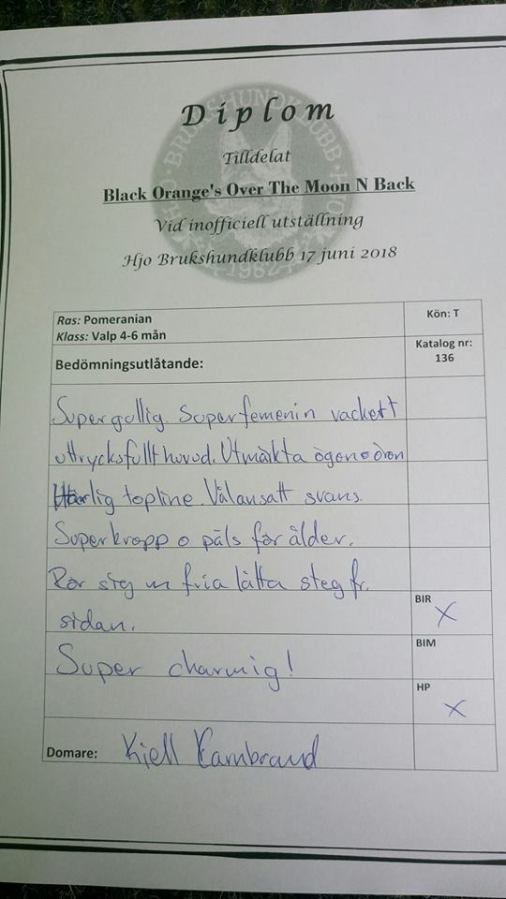 Diplom
Tilldelat
Black Orange's Over The Moon N Back
Vid inofficiell utställning
Hjo Brukshundklubb 17 juni 2018
BRUKSHUNDKLUBB
1982
Ras: Pomeranian
Klass: Valp 4-6 mån
Kön: T
Bedömningsutlåtande:
Katalog nr:
136
Supergullig. Superfeminin vackert
uttrycksfullt huvud. Utmärkta ögon o öron
Härlig topline. Välansatt svans.
Superkropp o päls för ålder.
Rör sig m fria lätta steg fr.
sidan.
BIR
X
BIM
Super charmig!
HP
X
Domare: Kjell Kambrand